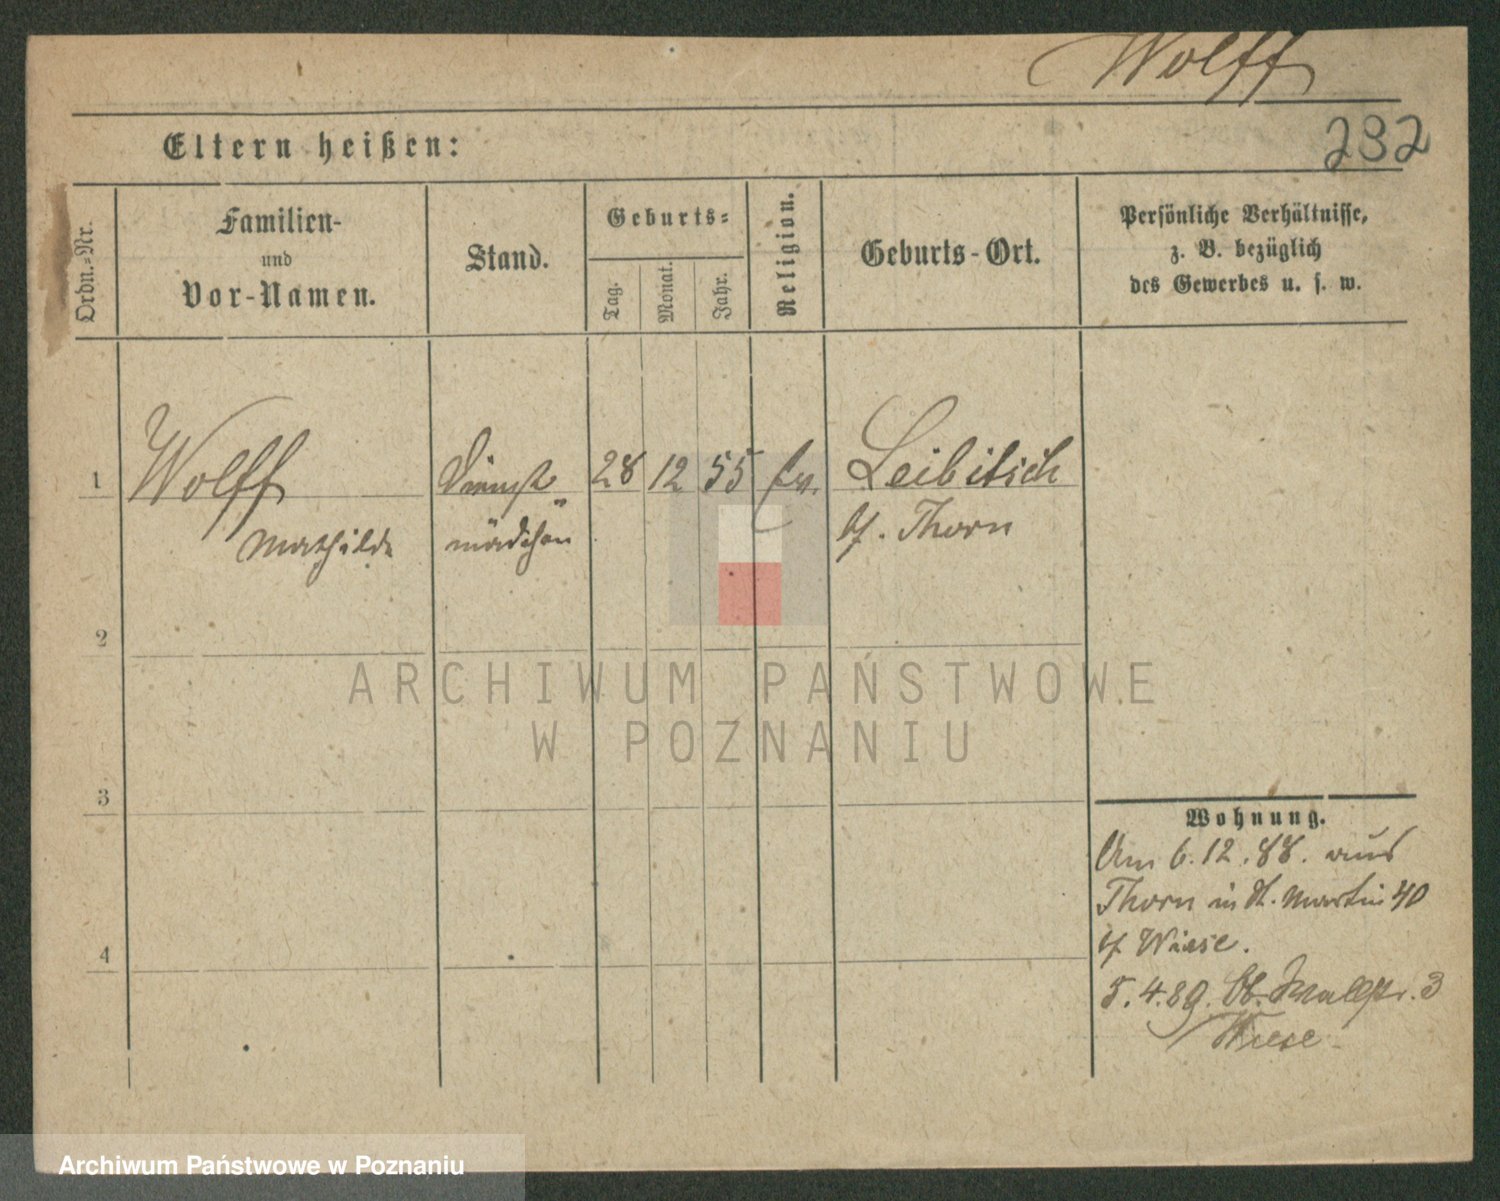 Wolff
Eltern heißen:
232
Ordn.-Nr.
Familien-
und
Vor-Namen.
Stand.
Geburts-
Tag.
Monat.
Jahr.
Religion.
Geburts-Ort.
Persönliche Verhältnisse,
z. B. bezüglich
des Gewerbes u. s. w.
1
Wolff
Mathilde
Dienst-
mädchen
28
12
55
ev.
Leibitsch
Thorn
2
ARCHIWUM PAŃSTWOWE
W POZNANIU
3
4
Wohnung.
Am 6.12.88. aus
Thorn in St. Martin 40
Wiese.
5.4.89. 3
Wiese
Archiwum Państwowe w Poznaniu